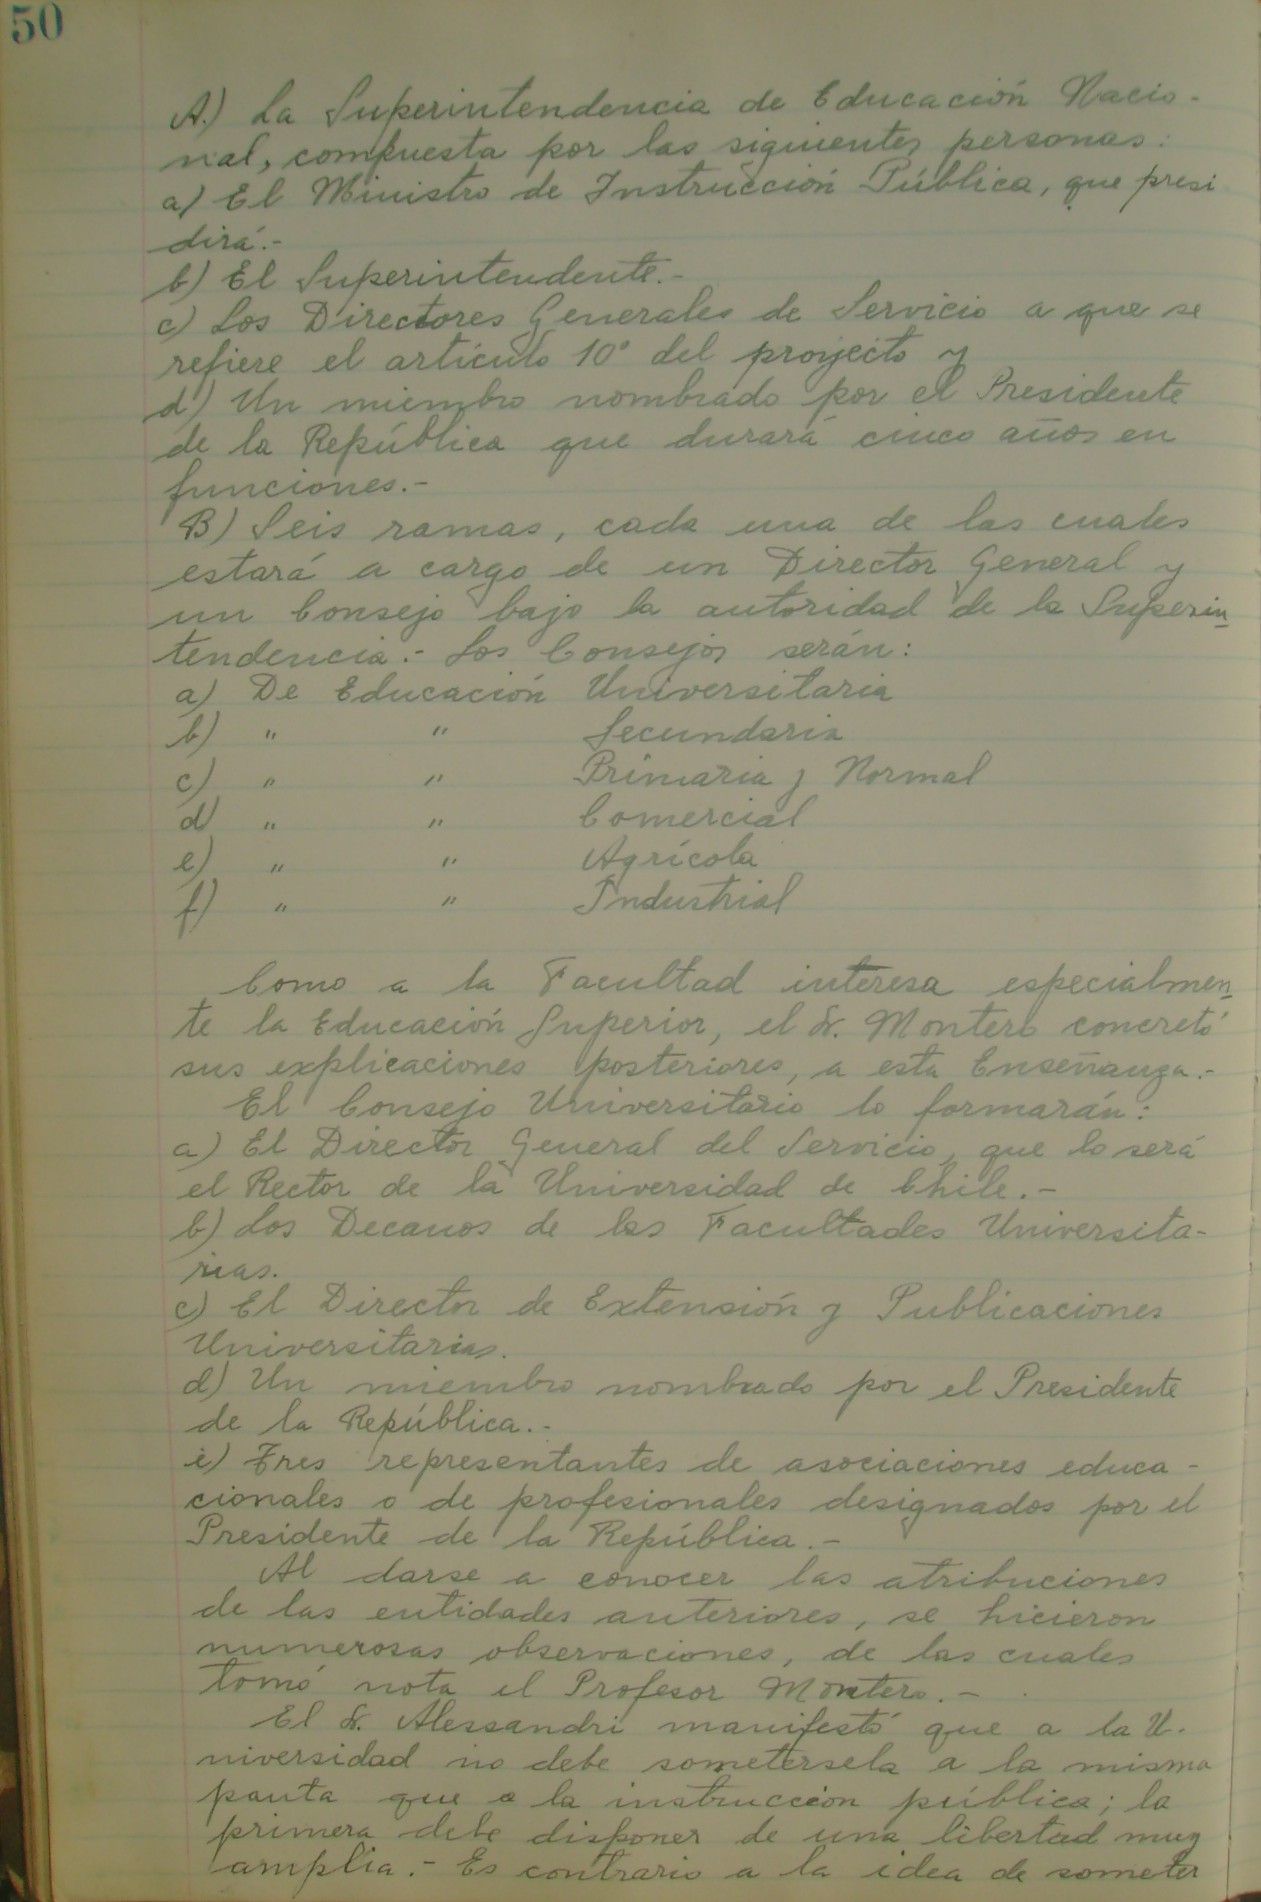 50
A.) La Superintendencia de Educación Nacio-
nal, compuesta por las siguientes personas:
a) El Ministro de Instrucción Pública, que presi
dirá.-
b) El Superintendente.-
c) Los Directores Generales de Servicio a que se
refiere el artículo 10° del proyecto y
d) Un miembro nombrado por el Presidente
de la República que durará cinco años en
funciones.-
B) Seis ramas, cada una de las cuales
estará a cargo de un Director General y
un Consejo bajo la autoridad de la Superin-
tendencia.- Los Consejos serán:
a) De Educación Universitaria
b) " " Secundaria
c) " " Primaria y Normal
d) " " Comercial
e) " " Agrícola
f) " " Industrial
Como a la Facultad interesa especialmen-
te la Educación Superior, el Sr. Montero concretó
sus explicaciones posteriores, a esta Enseñanza.-
El Consejo Universitario lo formarán:
a) El Director General del Servicio, que lo será
el Rector de la Universidad de Chile.-
b) Los Decanos de las Facultades Universita-
rias.
c) El Director de Extensión y Publicaciones
Universitarias.
d) Un miembro nombrado por el Presidente
de la República.-
e) Tres representantes de asociaciones educa-
cionales o de profesionales designados por el
Presidente de la República.-
Al darse a conocer las atribuciones
de las entidades anteriores, se hicieron
numerosas observaciones, de las cuales
tomó nota el Profesor Montero.-
El Sr. Alessandri manifestó que a la U-
niversidad no debe sometersela a la misma
pauta que a la instrucción pública; la
primera debe disponer de una libertad muy
amplia.- Es contrario a la idea de someter